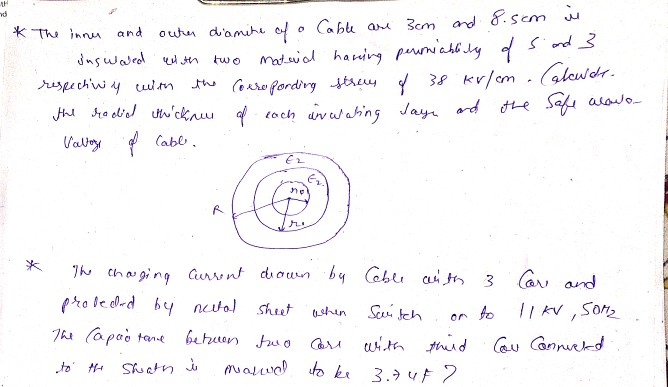 * The inner and outer diamite of a Cable are 3cm and 8.5cm is
insulated with two material having permiability of 5 and 3
respectiviy with the Corresponding stress of 38 KV/cm. Calculate
the radial thickness of each insulating layer and the Safe
Voltage of Cable.
ε2
ε2
r0
R
r1
* The charging Current drawn by Cable with 3 Core and
protected by metal sheet when Switch on to 11 KV, 50Hz
The Capacitance between two Core with third Core Connected
to the Sheath is measured to be 3.7 uF?